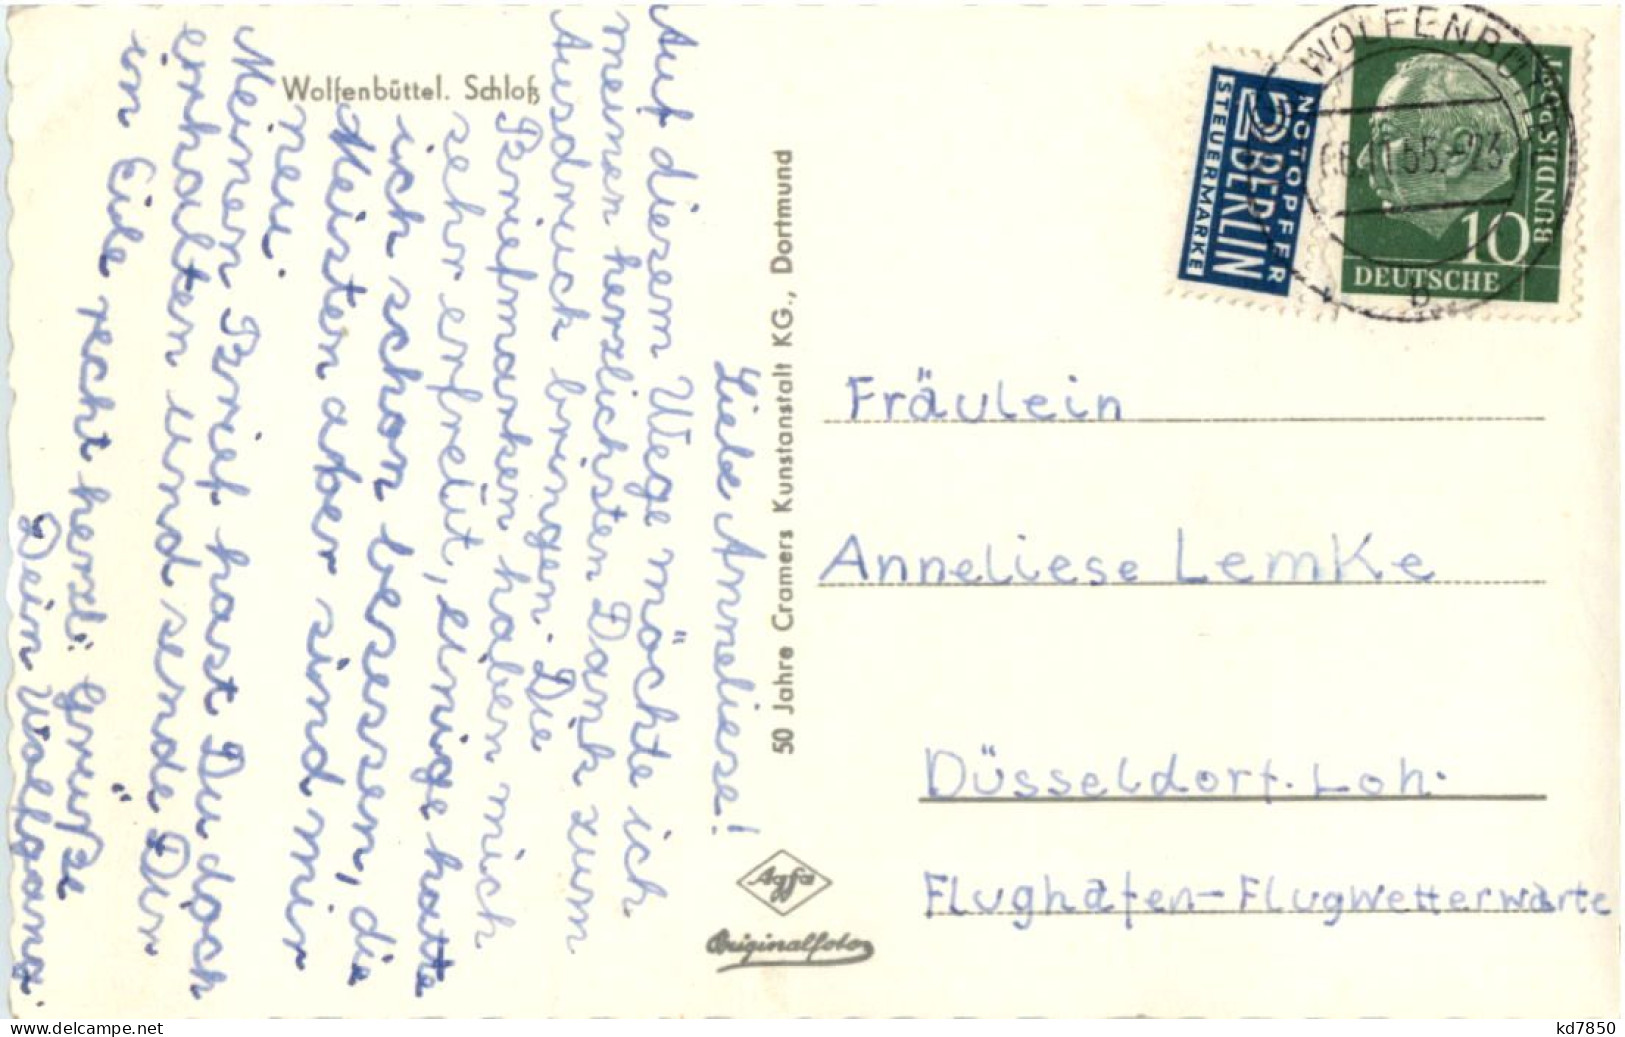 Wolfenbüttel. Schloß
Liebe Anneliese!
Auf diesem Wege möchte ich
meinen herzlichsten Dank zum
Ausdruck bringen. Die
Briefmarken haben mich
sehr erfreut, einige hatte
ich schon besessen, die
Meisten aber sind mir
neu.
Meinen Brief hast Du doch
erhalten und sende Dir
in Eile recht herzl. Grüße
Dein Wolfgang.
50 Jahre Cramers Kunstanstalt KG., Dortmund
Agfa
Originalfoto
NOTOPFER
2 BERLIN
STEUERMARKE
WOLFENBÜTTEL
b
10
DEUTSCHE
BUNDESPOST
Fräulein
Anneliese Lemke
Düsseldorf-Loh.
Flughafen-Flugwetterwarte
www.delcampe.net
kd7850